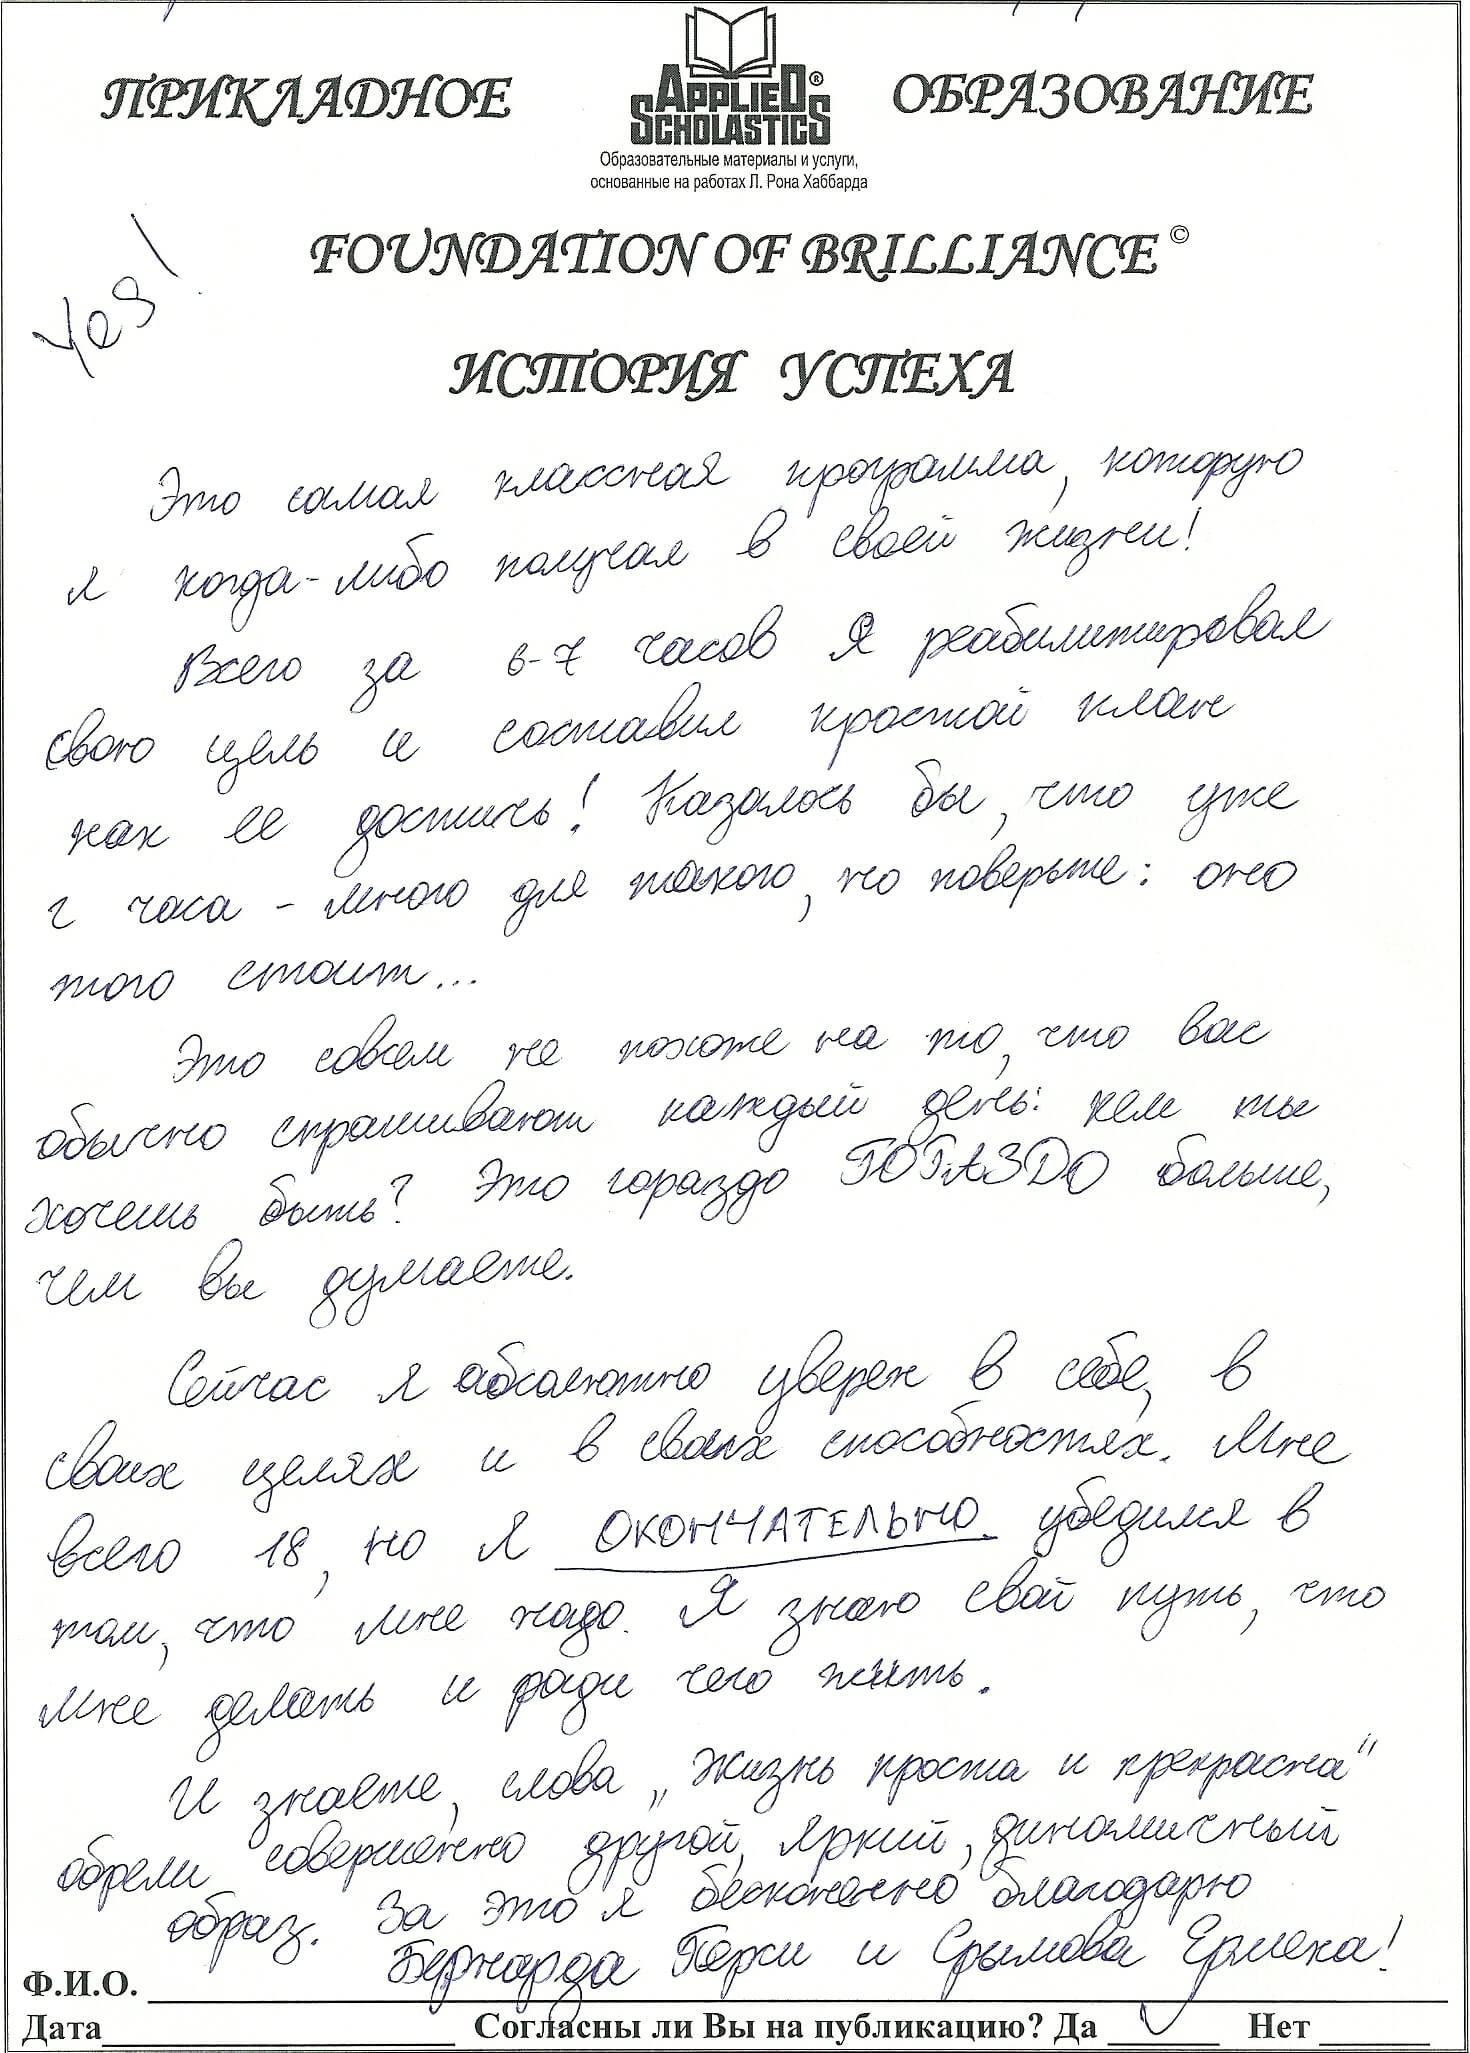 ПРИКЛАДНОЕ APPLIED SCHOLASTICS® ОБРАЗОВАНИЕ
Образовательные материалы и услуги,
основанные на работах Л. Рона Хаббарда
Yes!
FOUNDATION OF BRILLIANCE ©
ИСТОРИЯ УСПЕХА
Это самая классная программа, которую
я когда-либо получал в своей жизни!
Всего за 6-7 часов я реабилитировал
свою цель и составил простой план
как ее достичь! Казалось бы, что уже
2 часа - много для такого, но поверьте: оно
того стоит...
Это совсем не похоже на то, что вас
обычно спрашивают каждый день: кем ты
хочешь быть? Это гораздо ГОРАЗДО больше,
чем вы думаете.
Сейчас я абсолютно уверен в себе, в
своих целях и в своих способностях. Мне
всего 18, но я ОКОНЧАТЕЛЬНО убедился в
том, что мне надо. Я знаю свой путь, что
мне делать и ради чего жить.
И знаете, слова „Жизнь проста и прекрасна“
обрели совершенно другой, яркий, динамичный
образ. За это я бесконечно благодарю
Бернарда Перси и Срымова Ермека!
Ф.И.О.
Дата Согласны ли Вы на публикацию? Да ✓ Нет